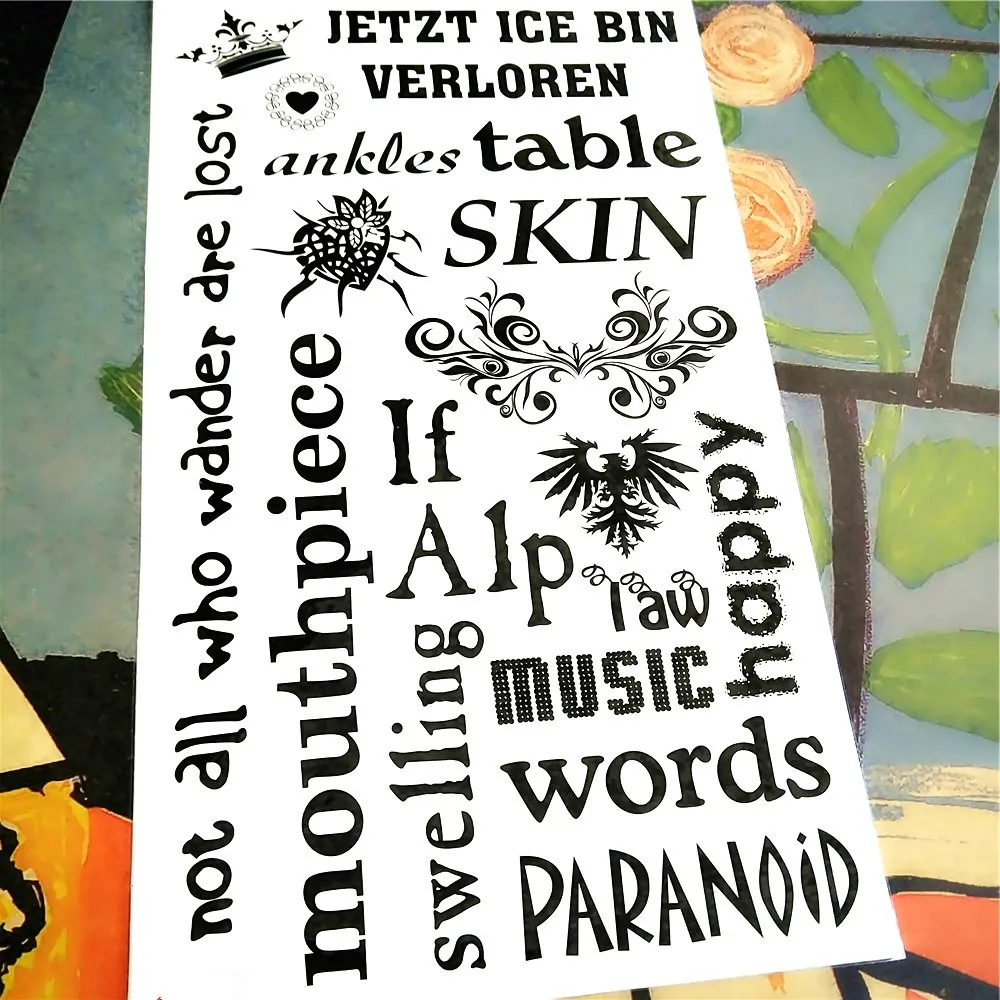 JETZT ICE BIN
VERLOREN
ankles table
SKIN
not all who wander are lost
mouthpiece
If
Alp
law
happy
swelling
MUSIC
words
PARANOiD